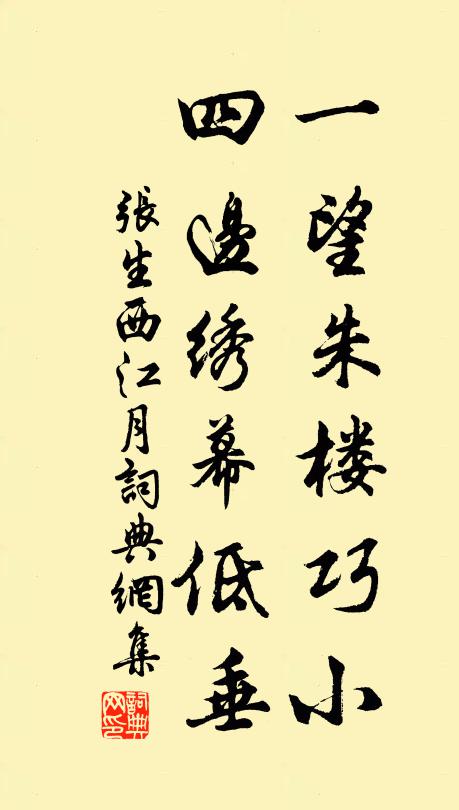 一望朱楼巧小
四邊绣幕低垂
張生西江月詞典網集
詞典網印